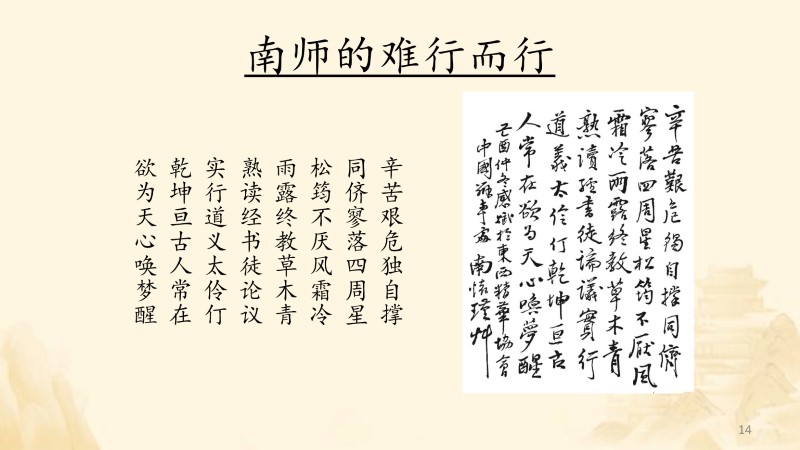 南师的难行而行
辛苦艰危独自撑
同侪寥落四周星
松筠不厌风霜冷
雨露终教草木青
熟读经书徒论议
实行道义太伶仃
乾坤亘古人常在
欲为天心唤梦醒
辛苦艱危獨自撐同儕
寥落四周星松筠不厭風
霜冷雨露終教草木青
熟讀經書徒論議實行
道義太伶仃乾坤亘古
人常在欲為天心喚夢醒
己酉仲冬感賦於東西精華協會
中國辦事處 南懷瑾艸
14